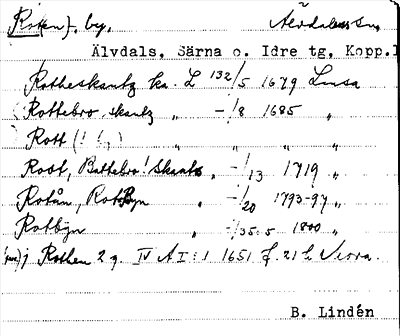 Roten), by, Älvdalens sn,
Älvdals, Särna o. Idre tg, Kopp.l
Rotheskantz ka. L 132/5 1679 Linsa
Rottebro, skantz " -/8 1685 "
Rott (!) " " "
Root, Battebro! Skants, " -/13 1719 "
Rotån, Rotbyn " -/20 1793-97 "
Rotbyn " -/35:5 1800 "
j Rothen 2 g. IV A I:1 1651 f. 21
B. Lindén